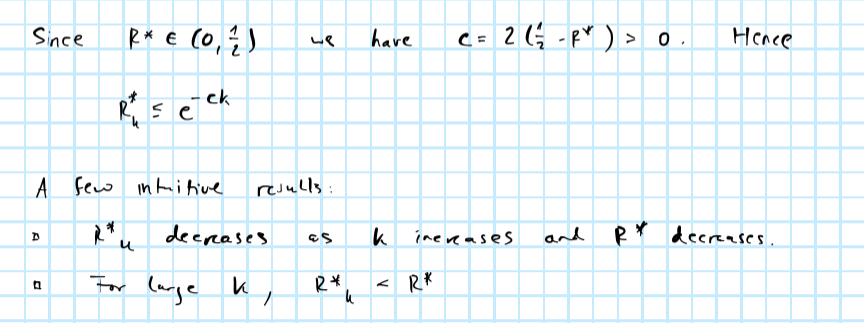 Since R* ∈ (0, 1/2) we have c = 2 (1/2 - R*) > 0. Hence
R*_k ≤ e^{-ck}
A few intuitive results:
▫ R*_k decreases as k increases and R* decreases.
▫ For large k, R*_k < R*